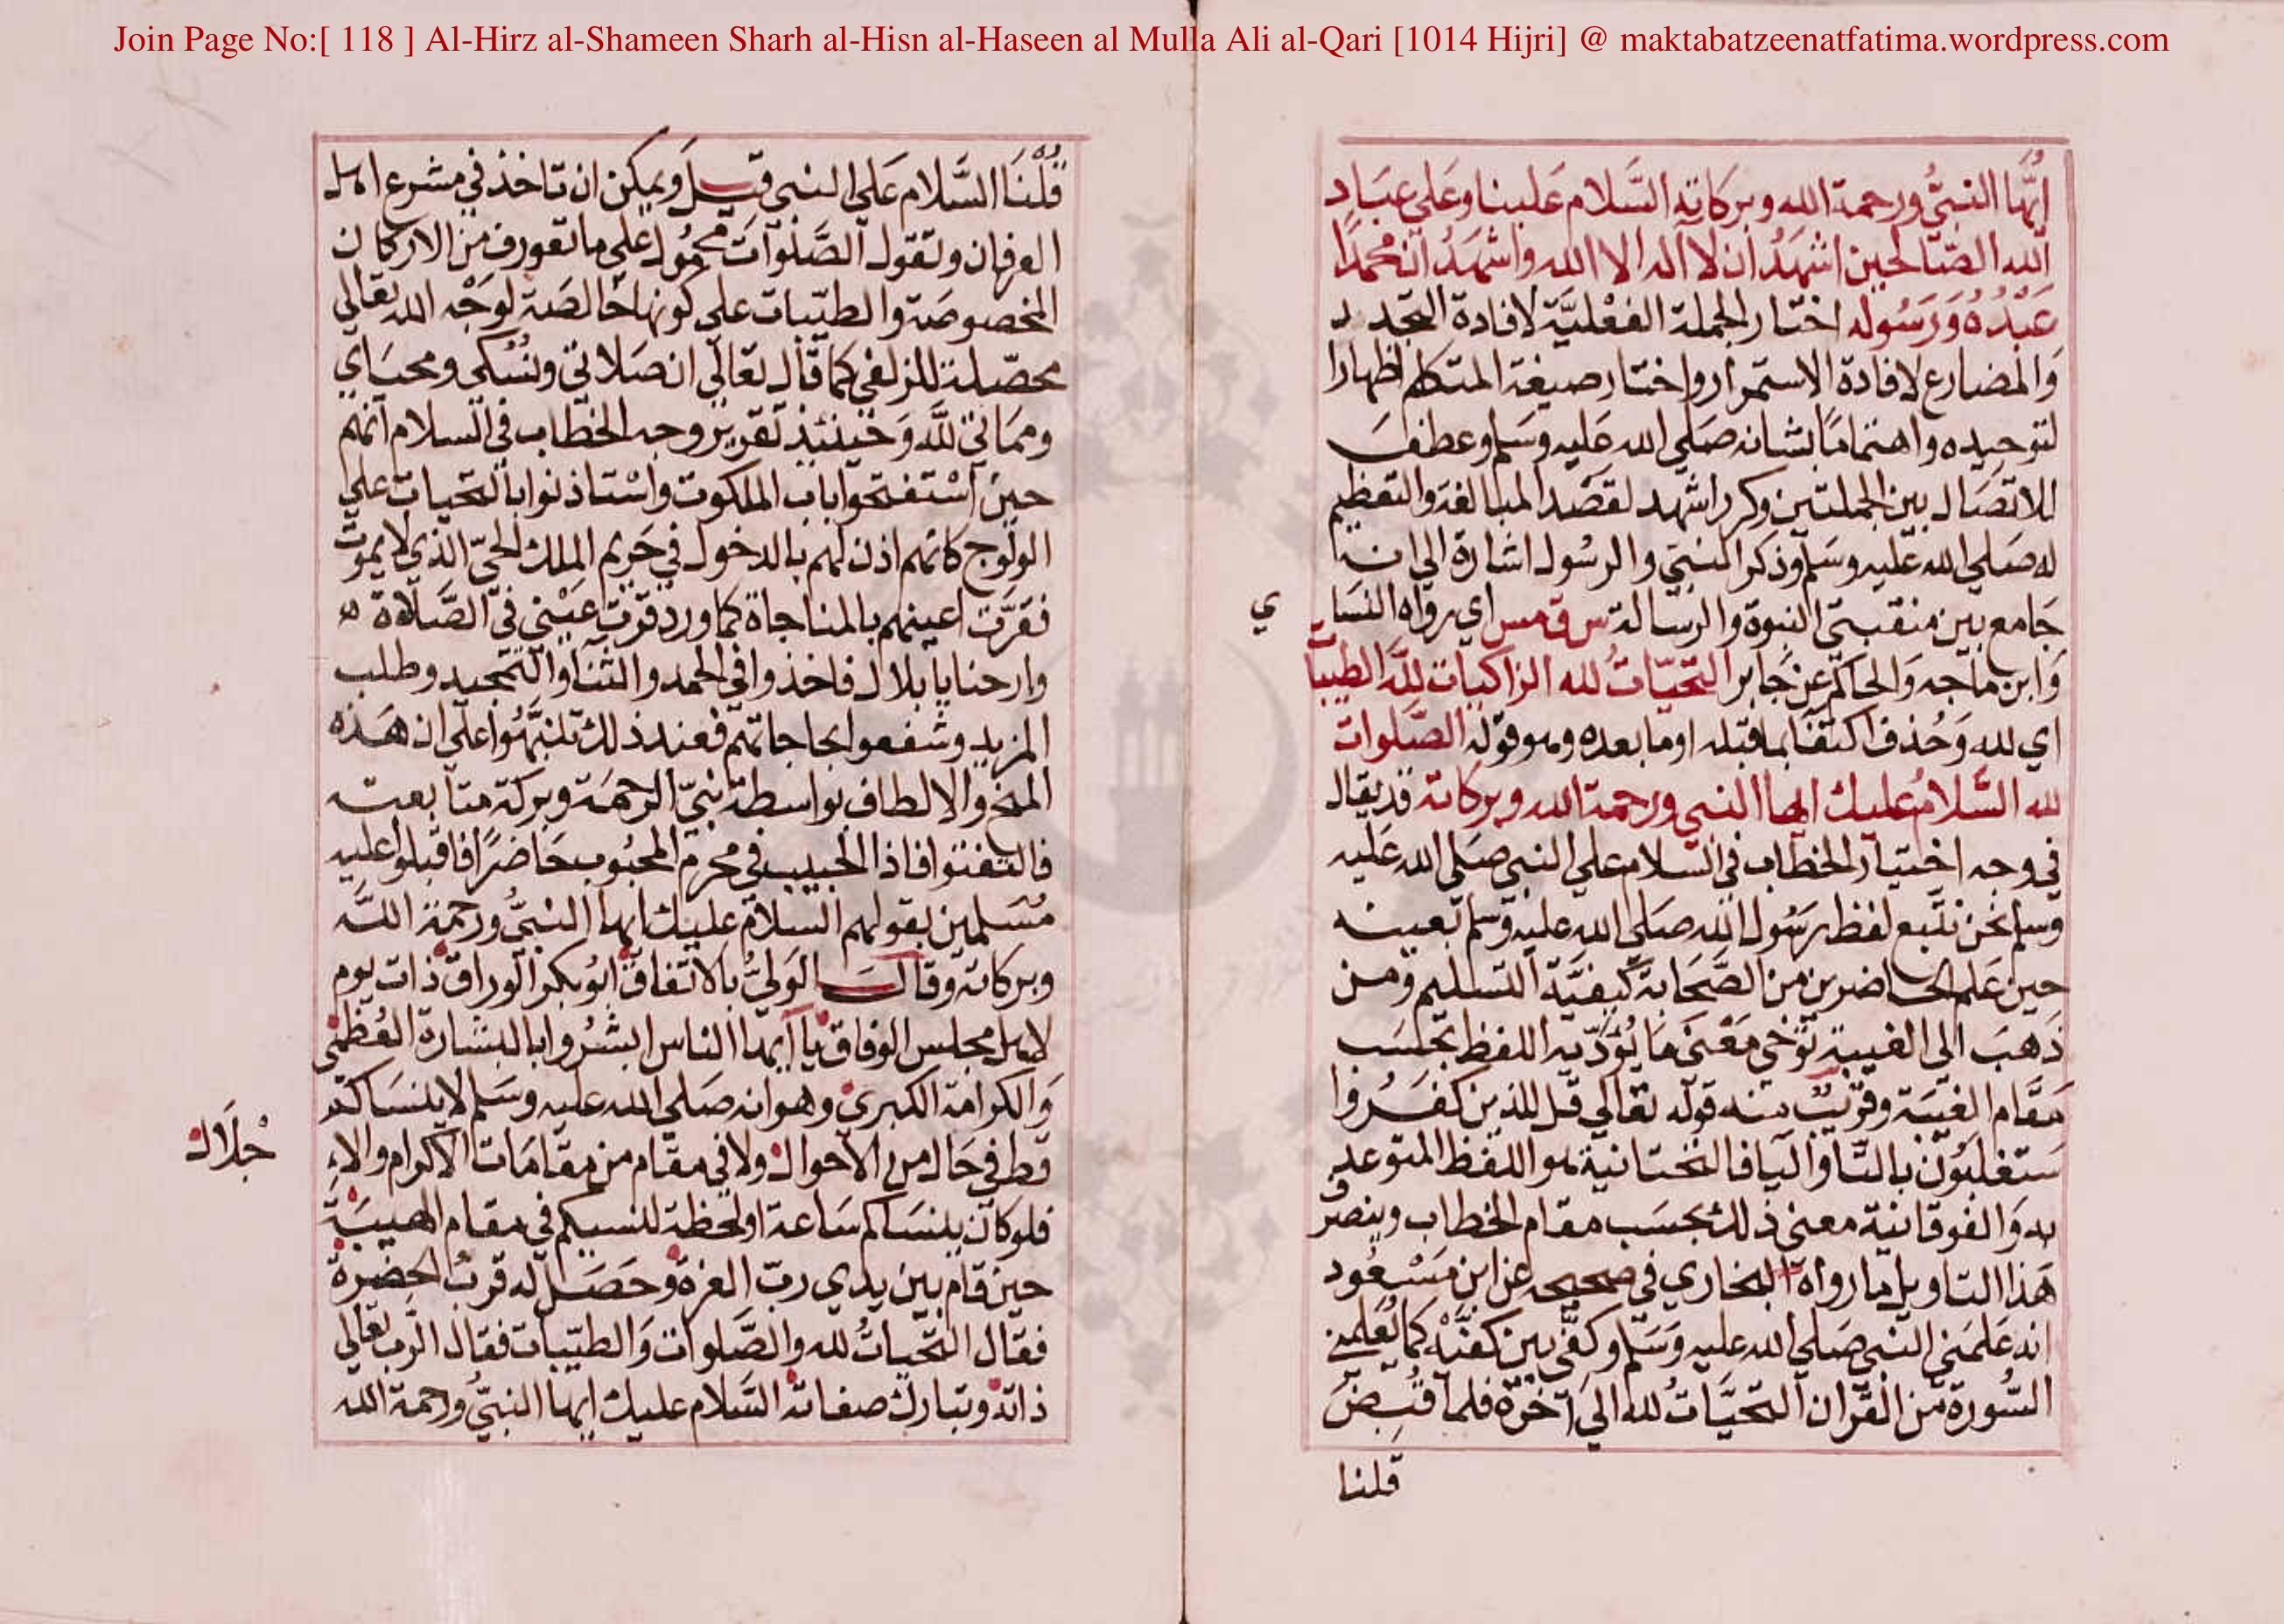 Join Page No:[ 118 ] Al-Hirz al-Shameen Sharh al-Hisn al-Haseen al Mulla Ali al-Qari [1014 Hijri] @ maktabatzeenatfatima.wordpress.com
ايُّها النبيُّ ورحمة الله وبركاته السَّلام عَلينا وعَلي عبَاد
الله الصّالحين اشهَدُ ان لا اله الا الله واشهَدُ انّ محُمدًا
عَبْدُهُ وَرَسُوله اختار الجملة الفعْليَّة لافادة التجدد
وَالمضارع لافادة الاستمرار واختار صيغة المتكلم اظهارا
لتوحيده واهتمامًا بشانه صَلي الله عَليه وسَلم وعطفَ
للاتصَال بين الجملتين وكرر اشهد لقصْد المبالغة والتعظيم
له صَلي الله عليه وسَلم وذكر النبيّ والرسُول اشارة الي انه
جَامع بين منقبتي النبوة والرسالة س ق مس اي رواه النسَا
ي
وَابن ماجه وَالحاكم عن جَابر التحيّاتُ لله الزاكيات للَّه الطيبات
اي لله وَحُذف اكتفا بما قبله او ما بعده وهو قوله الصَّلوات
لله السَّلامُ عليك ايها النبي ورحمة الله وبركاته قد يقال
في وجه اختيار الخطاب في السّلام علي النبي صَلي الله عَليه
وسلم نحن نتّبع لفظ رسُول الله صَلي الله عليه وسَلم بعينه
حين عَلم الحاضرين من الصَّحَابة كيفيَّة التسليم ومن
ذهبَ الي الغيبة توَخي مَعْني مَا يُؤدّيه اللفظ بحسَب
مقام الغيبَة وقريبٌ منه قوله تعَالي قل للذين كفَرُوا
سَتغلبُون بالتّا واليا فالتحتانية هو اللفظ المتوعد
به وَالفوقانية معني ذلك بحسَب مقام الخطاب وينصر
هَذا التاويل ما رواه البخاري في صحيحه عن ابن مَسْعُود
انه عَلمَني النبي صَلي الله عليه وَسَلم وكفّي بين كفيَّه كما يُعَلمني
السُّورة من القران التحيَّاتُ لله اليَ اخرة فلما قُبضَ
قلنا
قُلْنَا السَّلام عَلي النبي قيلَ ويمكن ان تاخذ في مشرع اهل
العرفان وتقول الصَّلوَات محمُول علي ما تعورف من الاركان
المخصوصَة والطيّبات علي كونها خالصَة لوَجْه الله تعَالي
محصّلة للزلفي كما قال تعَالي ان صَلاتي ونُسُكي ومحيَاي
وممَاتي للَّه وَحينئذ تقرير وجه الخطاب في السلام انهم
حينَ اسْتفتحوا باب الملكوت واسْتاذنوا بالتحيات علي
الولوج كانهم اذن لهم بالدخول في حَريم الملك الحيّ الذي لا يموت
فقرَّت اعينهم بالمناجاة كما ورد قرّت عَيْني في الصَّلاة
وارحنا يا بلال فاخذوا في الحمد والثنا والتمجيد وطلب
المزيد وشفعوا بحاجاتهم فعند ذلك تنبَّهُوا علي ان هَذه
المنح والالطاف بواسطة نبيّ الرحمَة وبركة متابعته
فالتفتوا فاذا الحبيب في محرم المحبُوب حَاضرًا فاقبلوا عليه
مُسَلمين بقولهم السلام عليك ايها النبيُّ ورحمة اللَّه
وبركاته وقالَ الوَليُّ بالاتفاق ابُو بكر الوراق ذات يوم
لاهل مجلس الوفاق يا ايها الناس ابشرُوا بالبشارة العُظمي
وَالكرامة الكبري وهو انه صَلي الله عليه وسَلم لا ينسَاكم
قط في حَال من الاحوال ولا في مقام من مقامَات الاكرام والا
جلَال
فلو كان ينسَاكم سَاعة او لحظة لنسيكم في مقام الهيبَة
حين قام بين يدي ربّ العزة وحَصَل له قربُ الحضرة
فقال التحّياتُ لله والصَّلوات وَالطيّبات فقال الرب تعالي
ذاته وتبارك صفاته السَّلام عليك ايها النبيّ ورحمة الله